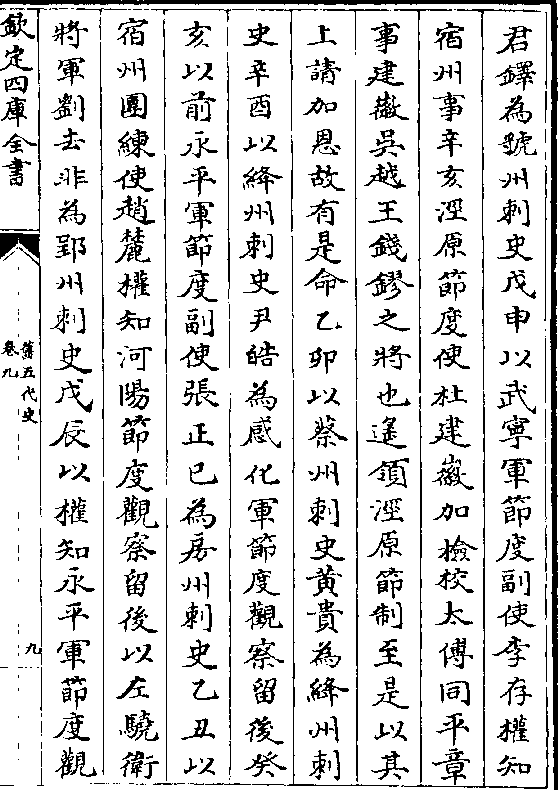 君鐸為虢州刺史戊申以武寧軍節度副使李存權知
宿州事辛亥涇原節度使杜建徽加檢校太傅同平章
事建徽吳越王錢鏐之將也遙領涇原節制至是以其
上請加恩故有是命乙卯以蔡州刺史黃貴為絳州刺
史辛酉以絳州刺史尹皓為感化軍節度觀察留後癸
亥以前永平軍節度副使張正已為房州刺史乙丑以
宿州團練使趙麓權知河陽節度觀察留後以左驍衛
將軍劉去非為郢州刺史戊辰以權知永平軍節度觀
欽定四庫全書
舊五代史
卷九
九